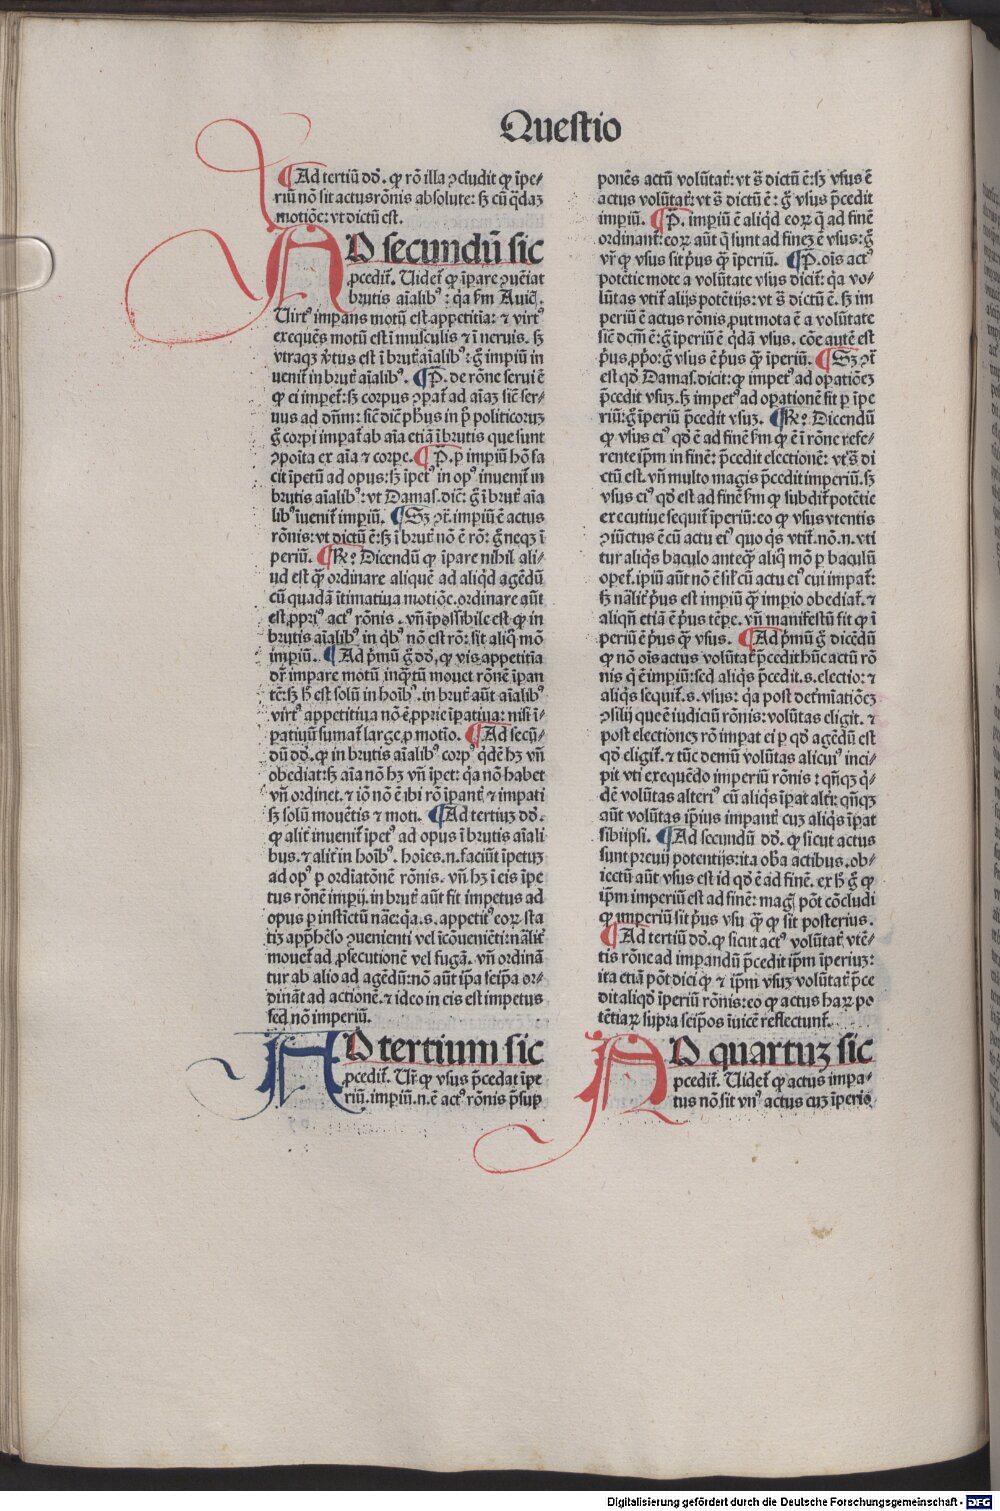 Questio
¶Ad tertiū dd. ꝙ rō illa ↄcludit ꝙ īpe-
riū nō sit actus rōnis absolute: sꝫ cū q̄dā
motiōe: vt dictū est.
AD secundū sic
ꝓcedit᷑. Uidet᷑ ꝙ īpare ↄuēiat
brutis aīalibꝰ: qꝛ ſm Auic̄.
Uirtꝰ impans motū est appetitia: ⁊ virtꝰ
exequēs motū est ī musculis ⁊ ī neruis. sꝫ
vtraqꝫ v̄tus est ī brut᷑ aīalibꝰ: g̊ impiū in
uenit᷑ in brut᷑ aīalibꝰ. ¶P̄. de rōne serui ē
ꝙ ei imperet᷑: sꝫ corpus ↄpat᷑ ad aīaꝫ sic̄ ser-
uus ad dn̄m: sic̄ dic̄ ph̄us in p̄ politicoruꝫ
g̊ corpi impat᷑ ab aīa etiā ī brutis que sunt
ↄpoīta ex aīa ⁊ corpe. ¶P̄. p impiū hō fa
cit īpetū ad opus: sꝫ īpetꝰ in opꝰ inuenit᷑ in
brutis aīalibꝰ: vt Damas. dic̄: g̊ ī brut᷑ aīa
libꝰ īuenit᷑ impiū. ¶Sꝫ ꝯt᷑. impiū ē actus
rōnis: vt dictū ē: sꝫ ī brut᷑ nō ē rō: g̊ neqꝫ ī
periū. ¶Rꝰ? Dicendū ꝙ īpare nihil ali-
ud est q̄ꝫ ordinare aliquē ad aliqd agēdū
cū quadā ītimatiua motiōe. ordinare aūt
est ꝓpriꝰ actꝰ rōnis. vn̄ īpossibile est ꝙ in
brutis aīalibꝰ in qbꝰ nō est rō: sit aliq mō
impiū. ¶Ad p̄mū g̊ dd. ꝙ vis appetitia
dr᷑ impare motū inqꝫtū mouet rōnē īpan
tē: sꝫ h̄ est solū in hoībꝰ. in brut᷑ aūt aīalibꝰ
virtꝰ appetitiua nō ē ꝓprie īpatiua: nisi ī-
patiuū sumat᷑ large ꝓ motio. ¶Ad secū-
dū dd. ꝙ in brutis aīalibꝰ corpꝰ qdē hꝫ vn̄
obediat: sꝫ aīa nō hꝫ vn̄ īpet: qꝛ nō habet
vn̄ ordinet. ⁊ iō nō ē ibi rō īpant᷑ ⁊ impati
sꝫ solū mouētis ⁊ moti. ¶Ad tertiuꝫ dd.
ꝙ alit᷑ inuenit᷑ īpetꝰ ad opus ī brutis aīali
bus. ⁊ alit᷑ in hoībꝰ. hoīes. n. faciūt īpetuꝫ
ad opꝰ p ordīatōnē rōnis. vn̄ hꝫ ī eis īpe
tus rōnē impij. in brut᷑ aūt fit impetus ad
opus p instictū nāe: qꝛ. s. appetitꝰ eoꝝ sta
tiꝫ app̄hēso ↄuenienti vel īcōueniēti: nālit᷑
mouet᷑ ad ꝓsecutionē vel fugā. vn̄ ordinā
tur ab alio ad agēdū: nō aūt ip̄a seip̄a or-
dināt ad actionē. ⁊ ideo in eis est impetus
sed nō imperiū.
AD tertium sic
ꝓcedit᷑. Ur᷑ ꝙ vsus p̄cedat īpe
riū. impiū. n. ē actꝰ rōnis p̄sup
ponēs actū volūtat᷑: vt s̄ dictū ē: sꝫ vsus ē
actus volūtat᷑: vt s̄ dictū ē: g̊ vsus p̄cedit
impiū. ¶P̄. impiū ē aliqd eoꝝ q̄ ad finē
ordinant᷑: eoꝝ aūt q̄ sunt ad fineꝫ ē vsus: g̊
vr᷑ ꝙ vsus sit p̄us q̄ꝫ īperiū. ¶P̄. oīs actꝰ
potētie mote a volūtate vsus dicit᷑: qꝛ vo-
lūtas vtit᷑ alijs potētijs: vt s̄ dictū ē. sꝫ im
periū ē actus rōnis ꝓut mota ē a volūtate
sic̄ dcm̄ ē: g̊ īperiū ē qdā vsus. cōe autē est
p̄us ꝓpo: g̊ vsus ē p̄us q̄ꝫ īperiū. ¶Sꝫ ꝯt᷑
est qd Damas. dicit: ꝙ impetꝰ ad opatiōeꝫ
p̄cedit vsuꝫ. sꝫ impetꝰ ad opationē fit p īpe
riū: g̊ īperiū p̄cedit vsuꝫ. ¶Rꝰ? Dicendū
ꝙ vsus eiꝰ qd ē ad finē ſm ꝙ ē ī rōne refe-
rente ip̄m in finē: p̄cedit electionē: vt s̄ di
ctū est. vn̄ multo magis p̄cedit imperiū. sꝫ
vsus eiꝰ qd est ad finē ſm ꝙ subdit᷑ potētie
executiue sequit᷑ īperiū: eo ꝙ vsus vtentis
ↄiūctus ē cū actu eiꝰ quo qs vtit᷑. nō. n. vti
tur aliqs baculo anteq̄ꝫ aliq mō p baculū
opet᷑. īpiū aūt nō ē sil̄ cū actu eiꝰ cui impat᷑:
sꝫ nālit᷑ p̄us est impiū q̄ꝫ impio obediat᷑. ⁊
aliqn̄ etiā ē p̄us tēpe. vn̄ manifestū fit ꝙ ī
periū ē p̄us q̄ꝫ vsus. ¶Ad p̄mū g̊ dicēdū
ꝙ nō oīs actus volūtat᷑ p̄cedit hūc actū rō
nis q̄ ē impiū: sed aliqs p̄cedit. s. electio: ⁊
aliqs sequit᷑. s. vsus: qꝛ post det᷑mīatiōeꝫ
ↄsilij que ē iudiciū rōnis: volūtas eligit. ⁊
post electioneꝫ rō impat ei p qd agēdū est
qd eligit᷑. ⁊ tūc demū volūtas alicuiꝰ inci-
pit vti exequēdo imperiū rōnis: qn̄qꝫ q-
dē volūtas alteriꝰ cū aliqs īpat alt᷑i: qn̄qꝫ
aūt volūtas ip̄ius impant᷑ cuꝫ aliqs īpat
sibiipsi. ¶Ad secundū dd. ꝙ sicut actus
sunt preuij potentijs: ita ob̄a actibus. ob-
iectū aūt vsus est id qd ē ad finē. ex h̄ g̊ ꝙ
ip̄m imperiū est ad finē: magꝭ pōt cōcludi
ꝙ imperiū sit p̄us vsu q̄ꝫ ꝙ sit posterius.
¶Ad tertiū dd. ꝙ sicut actꝰ volūtat᷑ vtē-
tis rōne ad impandū p̄cedit ip̄m īperiuꝫ:
ita etiā pōt dici ꝙ ⁊ ip̄m vsuꝫ volūtat᷑ p̄ce
dit aliqd īperiū rōnis: eo ꝙ actus haꝝ po
tētiaꝝ supra seip̄os īuicē reflectunt᷑.
AD quartuꝫ sic
ꝓcedit᷑. Uidet᷑ ꝙ actus impa-
tus nō sit vnꝰ actus cuꝫ īperio
Digitalisierung gefördert durch die Deutsche Forschungsgemeinschaft - DFG